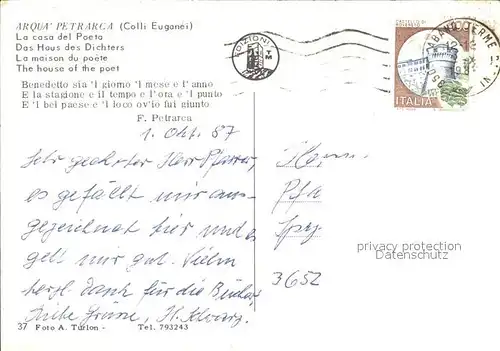 ARQUA' PETRARCA (Colli Euganei)
La casa del Poeta
Das Haus des Dichters
La maison du poète
The house of the poet
Benedetto sia 'l giorno 'l mese e l' anno
E la stagione e il tempo e l'ora e 'l punto
E 'l bel paese e 'l loco ov'io fui giunto
F. Petrarca
1. Okt. 87
Sehr geehrter Herr Pfarrer,
es gefällt mir aus-
gezeichnet hier und es
geht mir gut. Vielen
herzl. Dank für die Bücher
Grüsse, H.
37 Foto A. Turlon - Tel. 793243
EDIZIONI
ABANO TERME
ITALIA
Herrn
Pfr
3652
privacy protection
Datenschutz